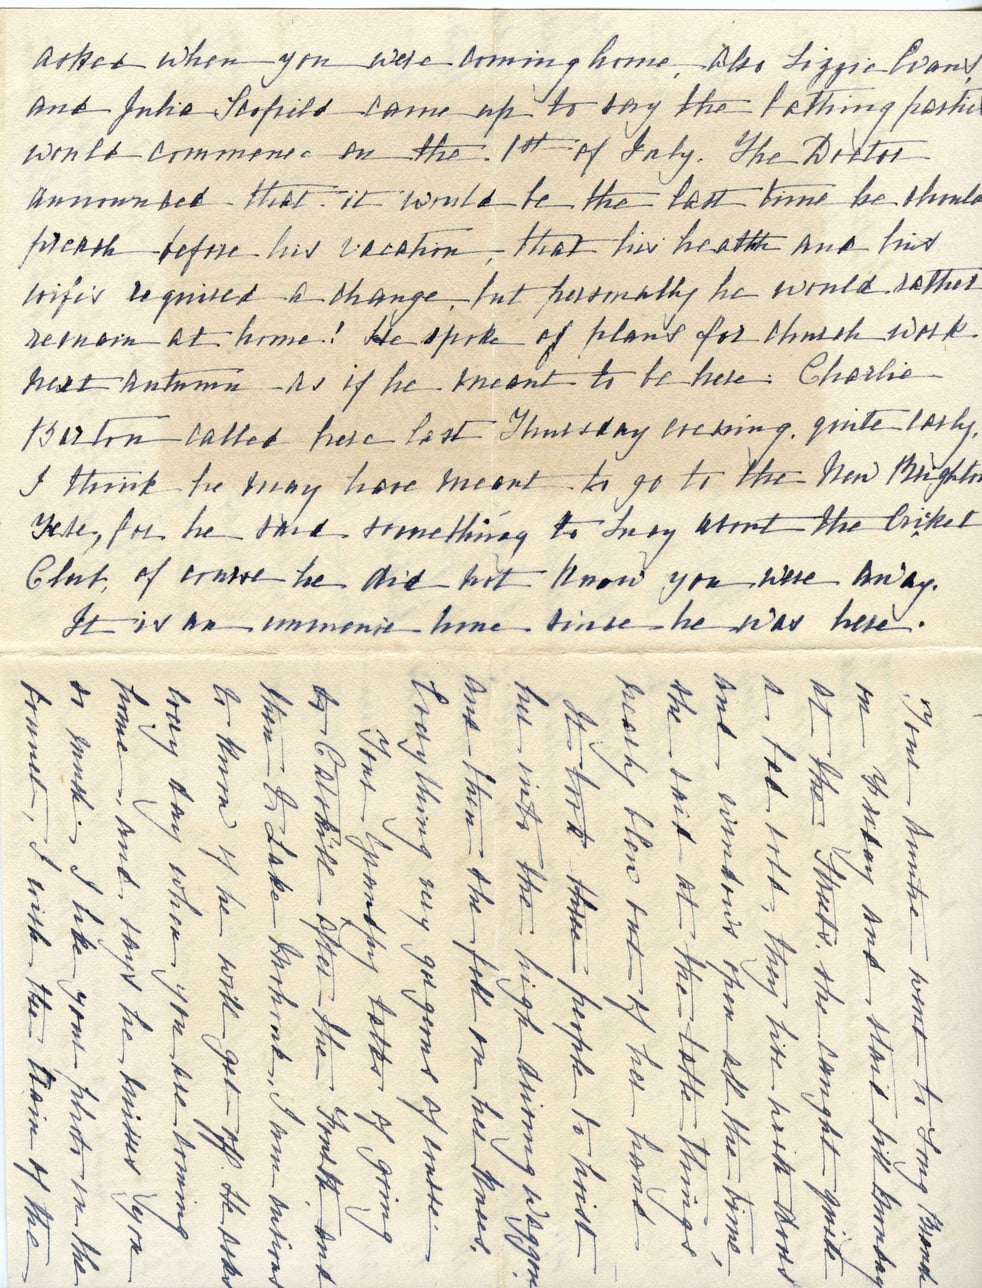 asked when you were coming home, also Lizzie Evans
and Julia Scofield came up to say the bathing parties
would commence on the 1st of July. The Doctor
announced that it would be the last time he should
preach before his vacation, that his health and his
wife's required a change, but personally he would rather
remain at home! He spoke of plans for church work
next autumn as if he meant to be here. Charlie
Barton called here last Thursday evening, quite early,
I think he may have meant to go to the New Brighton
Fete, for he said something to Lucy about the Criket
Club, of course he did not know you were away.
It is an immense time since he was here.
Your Auntie went to Long Branch
on Friday and staid till Monday
at the she caught quite
a bad cold, they like with doors
and windows open all the time,
she said at the table things
nearly blew out of her hand
It took three people to hoist
her into the high driving waggon,
and then she fell on her knees.
Everything very gorgeous of course.
Your Grandpy talks of going
to Catskill after the Fourth and
then to Lake Mohonk, I am anxious
to know if he will get off. He asks
every day when you are coming
home, and says he misses you
so much. I like your photo in the
bonnet, I wish the train of the